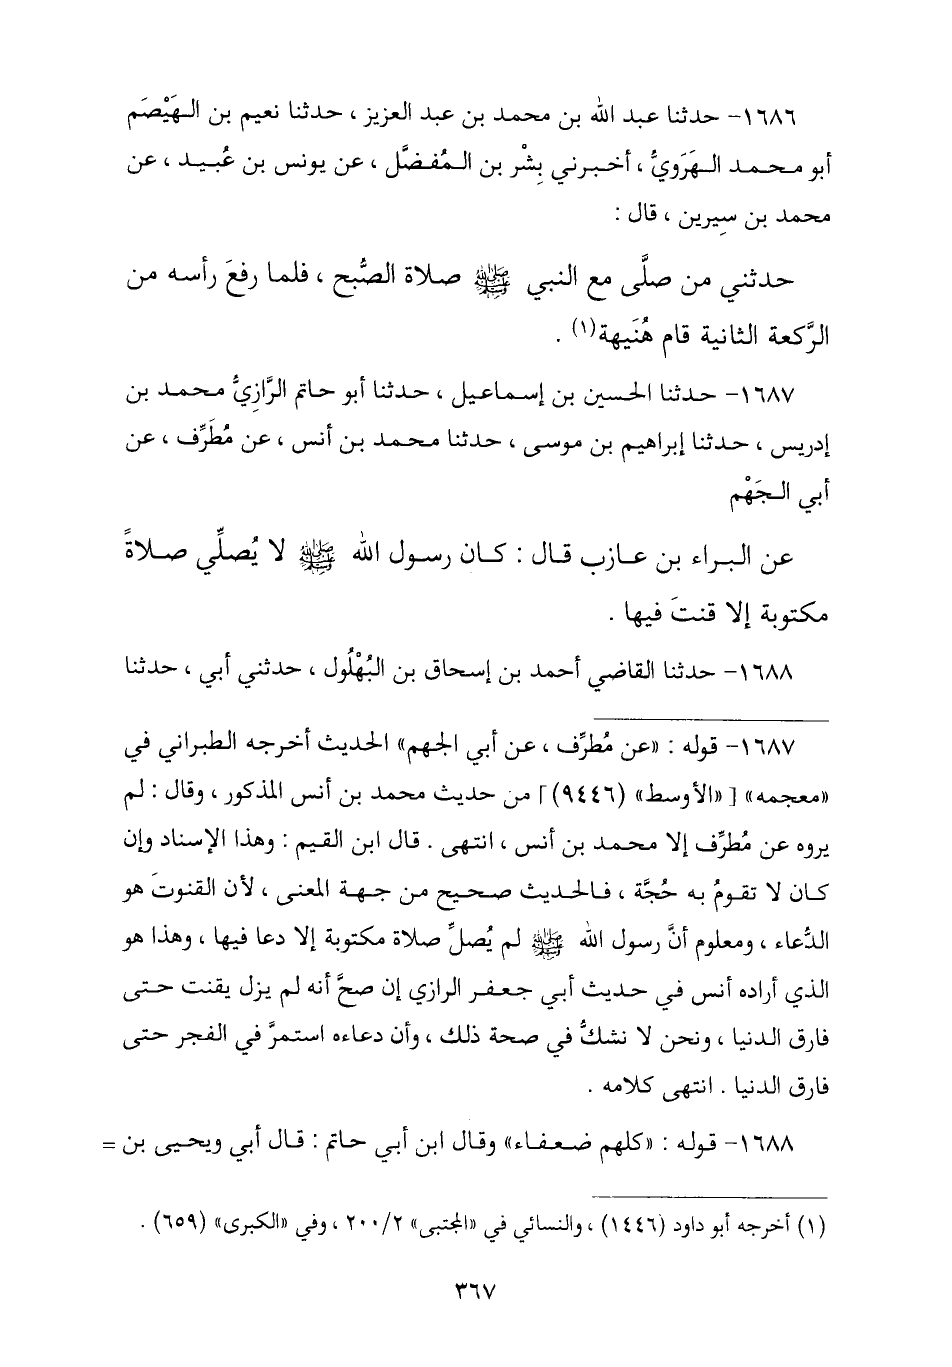 ١٦٨٦- حدثنا عبد الله بن محمد بن عبد العزيز ، حدثنا نعيم بن الهَيْصَم
أبو محمد الهَرَويُّ ، أخبرني بِشْر بن المُفضَّل ، عن يونس بن عُبيد ، عن
محمد بن سِيرين ، قال :
حدثني من صلَّى مع النبي ﷺ صلاة الصُّبح ، فلما رفعَ رأسه من
الرَّكعة الثانية قام هُنَيهة(١) .
١٦٨٧- حدثنا الحسين بن إسماعيل ، حدثنا أبو حاتم الرَّازِيُّ محمد بن
إدريس ، حدثنا إبراهيم بن موسى ، حدثنا محمد بن أنس ، عن مُطَرِّف ، عن
أبي الجَهْم
عن البراء بن عازب قال : كان رسول الله ﷺ لا يُصلِّي صلاةً
مكتوبة إلا قنتَ فيها .
١٦٨٨- حدثنا القاضي أحمد بن إسحاق بن البُهْلُول ، حدثني أبي ، حدثنا
١٦٨٧- قوله : «عن مُطرِّف ، عن أبي الجهم» الحديث أخرجه الطبراني في
«معجمه» [«الأوسط» (٩٤٤٦)] من حديث محمد بن أنس المذكور ، وقال : لم
يروه عن مُطرِّف إلا محمد بن أنس ، انتهى . قال ابن القيم : وهذا الإسناد وإن
كان لا تقومُ به حُجَّة ، فالحديث صحيح من جهة المعنى ، لأن القنوتَ هو
الدُّعاء ، ومعلوم أنَّ رسول الله ﷺ لم يُصلِّ صلاة مكتوبة إلا دعا فيها ، وهذا هو
الذي أراده أنس في حديث أبي جعفر الرازي إن صحَّ أنه لم يزل يقنت حتى
فارق الدنيا ، ونحن لا نشكُّ في صحة ذلك ، وأن دعاءه استمرَّ في الفجر حتى
فارق الدنيا . انتهى كلامه .
١٦٨٨- قوله : «كلهم ضعفاء» وقال ابن أبي حاتم : قال أبي ويحيى بن =
(١) أخرجه أبو داود (١٤٤٦) ، والنسائي في «المجتبى» ٢٠٠/٢ ، وفي «الكبرى» (٦٥٩) .
٣٦٧